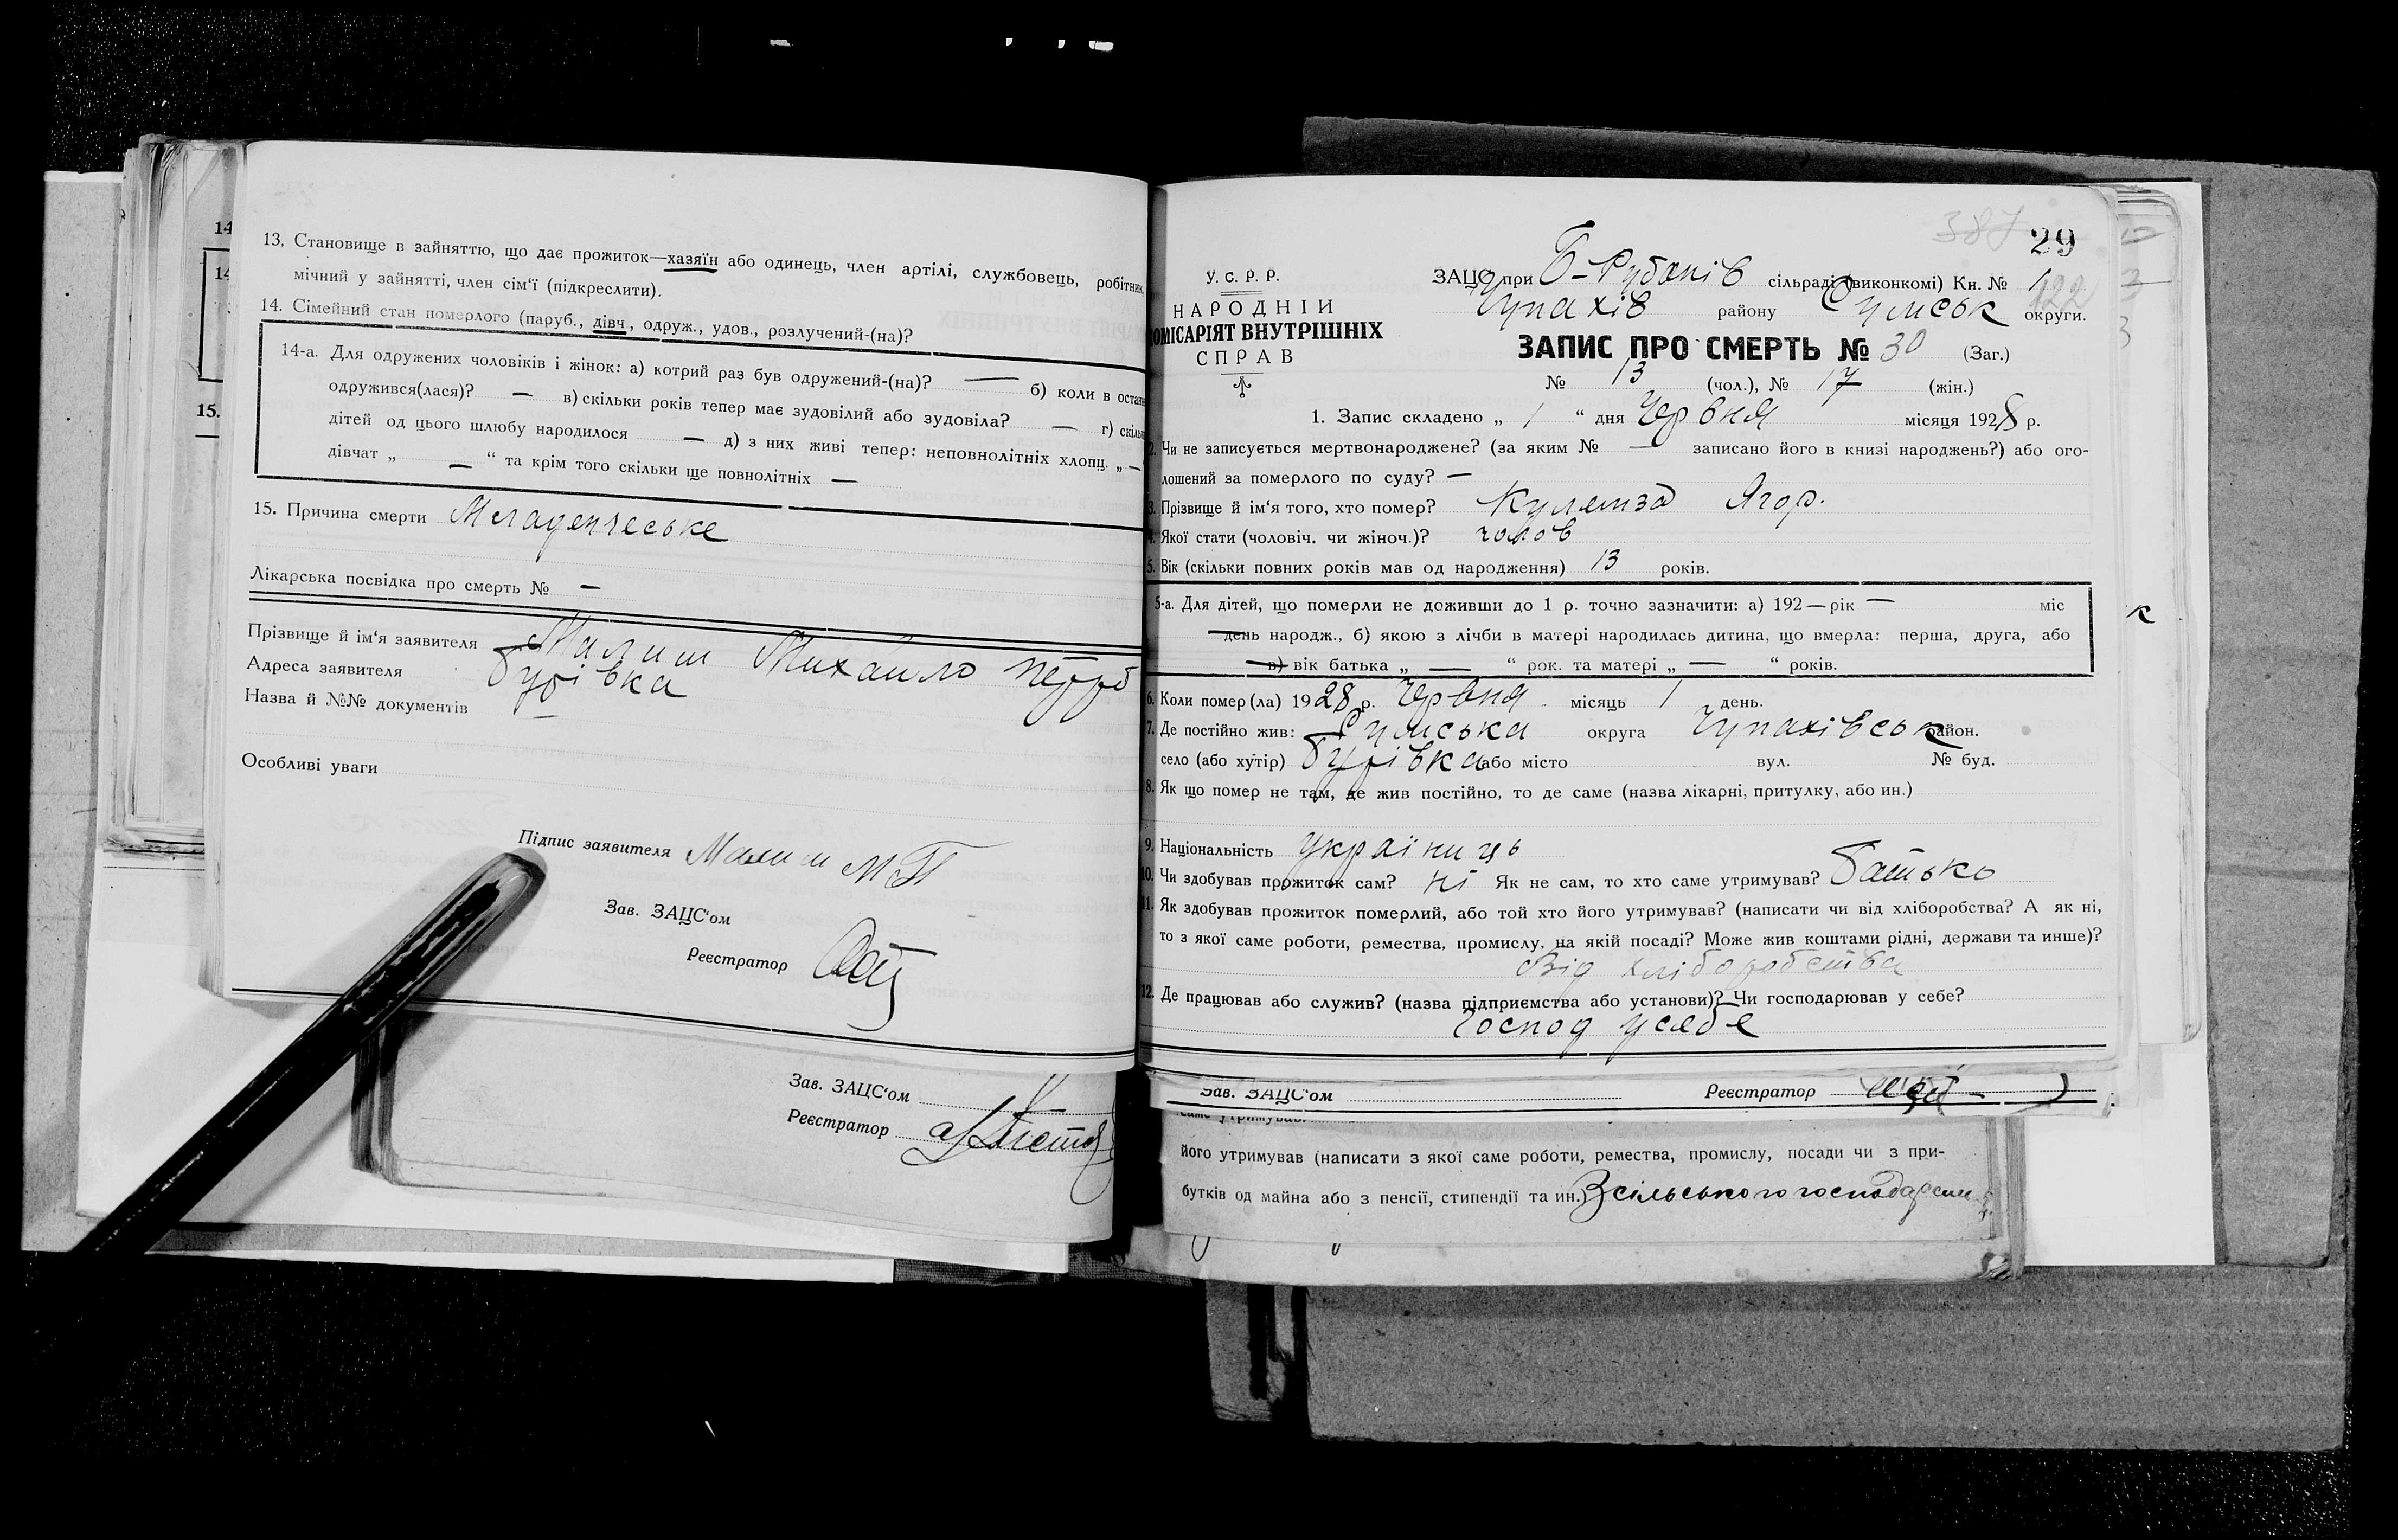 13. Становище в зайняттю, що дає прожиток—хазяїн або одинець, член артілі, службовець, робітник,
мічний у зайнятті, член сім'ї (підкреслити).
14. Сімейний стан померлого (паруб., дівч., одруж., удов., розлучений-(на)?
14-а. Для одружених чоловіків і жінок: а) котрий раз був одружений-(на)? — б) коли в остан
одружився(лася)? — в) скільки років тепер має зудовілий або зудовіла? — г) скільк
дітей од цього шлюбу народилося — д) з них живі тепер: неповнолітніх хлопц. „ —
дівчат „ — “ та крім того скільки ще повнолітніх —
15. Причина смерти Младенческе
Лікарська посвідка про смерть № —
Прізвище й ім'я заявителя Малиш Михайло
Адреса заявителя
Назва й №№ документів —
Особливі уваги
Підпис заявителя Малиш М П
Зав. ЗАЦС'ом
Реєстратор
Зав. ЗАЦС'ом
Реєстратор
14
14
15.
387
29
У. С. Р. Р.
НАРОДНІЙ
КОМІСАРІЯТ ВНУТРІШНІХ
СПРАВ
ЗАЦС при Б-Рубанів сільраді (виконкомі) Кн. № 1
122
Чупахів району Сумськ округи.
ЗАПИС ПРО СМЕРТЬ № 30 (Заг.)
№ 13 (чол.), № 17 (жін.)
1. Запис складено „ 1 “ дня Червня місяця 1928 р.
2. Чи не записується мертвонароджене? (за яким № — записано його в книзі народжень?) або ого-
лошений за померлого по суду? —
3. Прізвище й ім'я того, хто помер? Ягор.
4. Якої стати (чоловіч. чи жіноч.)? чолов
5. Вік (скільки повних років мав од народження) 13 років.
5-а. Для дітей, що померли не доживши до 1 р. точно зазначити: а) 192 — рік — міс
день народж., б) якою з лічби в матері народилась дитина, що вмерла: перша, друга, або
в) вік батька „ — “ рок. та матері „ — “ років.
6. Коли помер(ла) 1928 р. Червня місяць 1 день.
7. Де постійно жив: Сумська округа Чупахівськ район.
село (або хутір) або місто вул. № буд.
8. Як що помер не там, де жив постійно, то де саме (назва лікарні, притулку, або ин.)
9. Національність українць
10. Чи здобував прожиток сам? ні Як не сам, то хто саме утримував? батько
11. Як здобував прожиток померлий, або той хто його утримував? (написати чи від хліборобства? А як ні,
то з якої саме роботи, ремества, промислу, на якій посаді? Може жив коштами рідні, держави та инше)?
Від хліборобства
12. Де працював або служив? (назва підприємства або установи)? Чи господарював у себе?
Господ усебе
Зав. ЗАЦС'ом Реєстратор
саме утримував.
його утримував (написати з якої саме роботи, ремества, промислу, посади чи з при-
бутків од майна або з пенсії, стипендії та ин.) З сільського